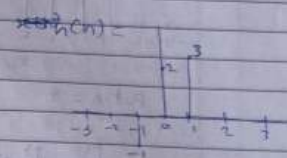 h(n) =
3
2
-3 -2 -1 0 1 2 3
-1